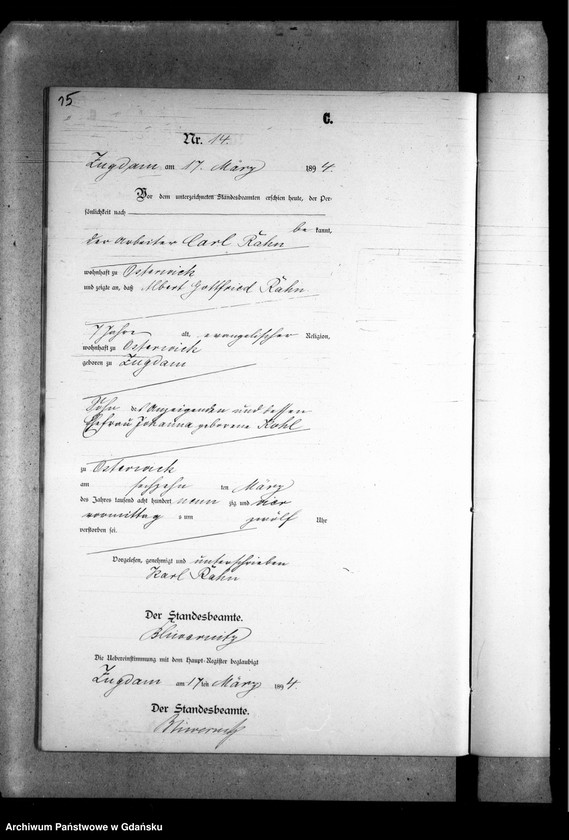 15
C.
Nr. 14.
Zugdam am 17. März 1894.
Vor dem unterzeichneten Standesbeamten erschien heute, der Per-
sönlichkeit nach
be kannt,
der Arbeiter Carl Rahn
wohnhaft zu Osterwick
und zeigte an, daß Albert Gottfried Rahn
7 Jahre alt, evangelischer Religion,
wohnhaft zu Osterwick
geboren zu Zugdam
Sohn des Anzeigenden und dessen
Ehefrau Johanna geborene Kohl
zu Osterwick
am sechzehn ten März
des Jahres tausend acht hundert neun zig und vier
vormittag s um zwölf Uhr
verstorben sei.
Vorgelesen, genehmigt und unterschrieben
Karl Rahn
Der Standesbeamte.
Die Uebereinstimmung mit dem Haupt-Register beglaubigt
Zugdam am 17ten März 1894.
Der Standesbeamte.
Archiwum Państwowe w Gdańsku